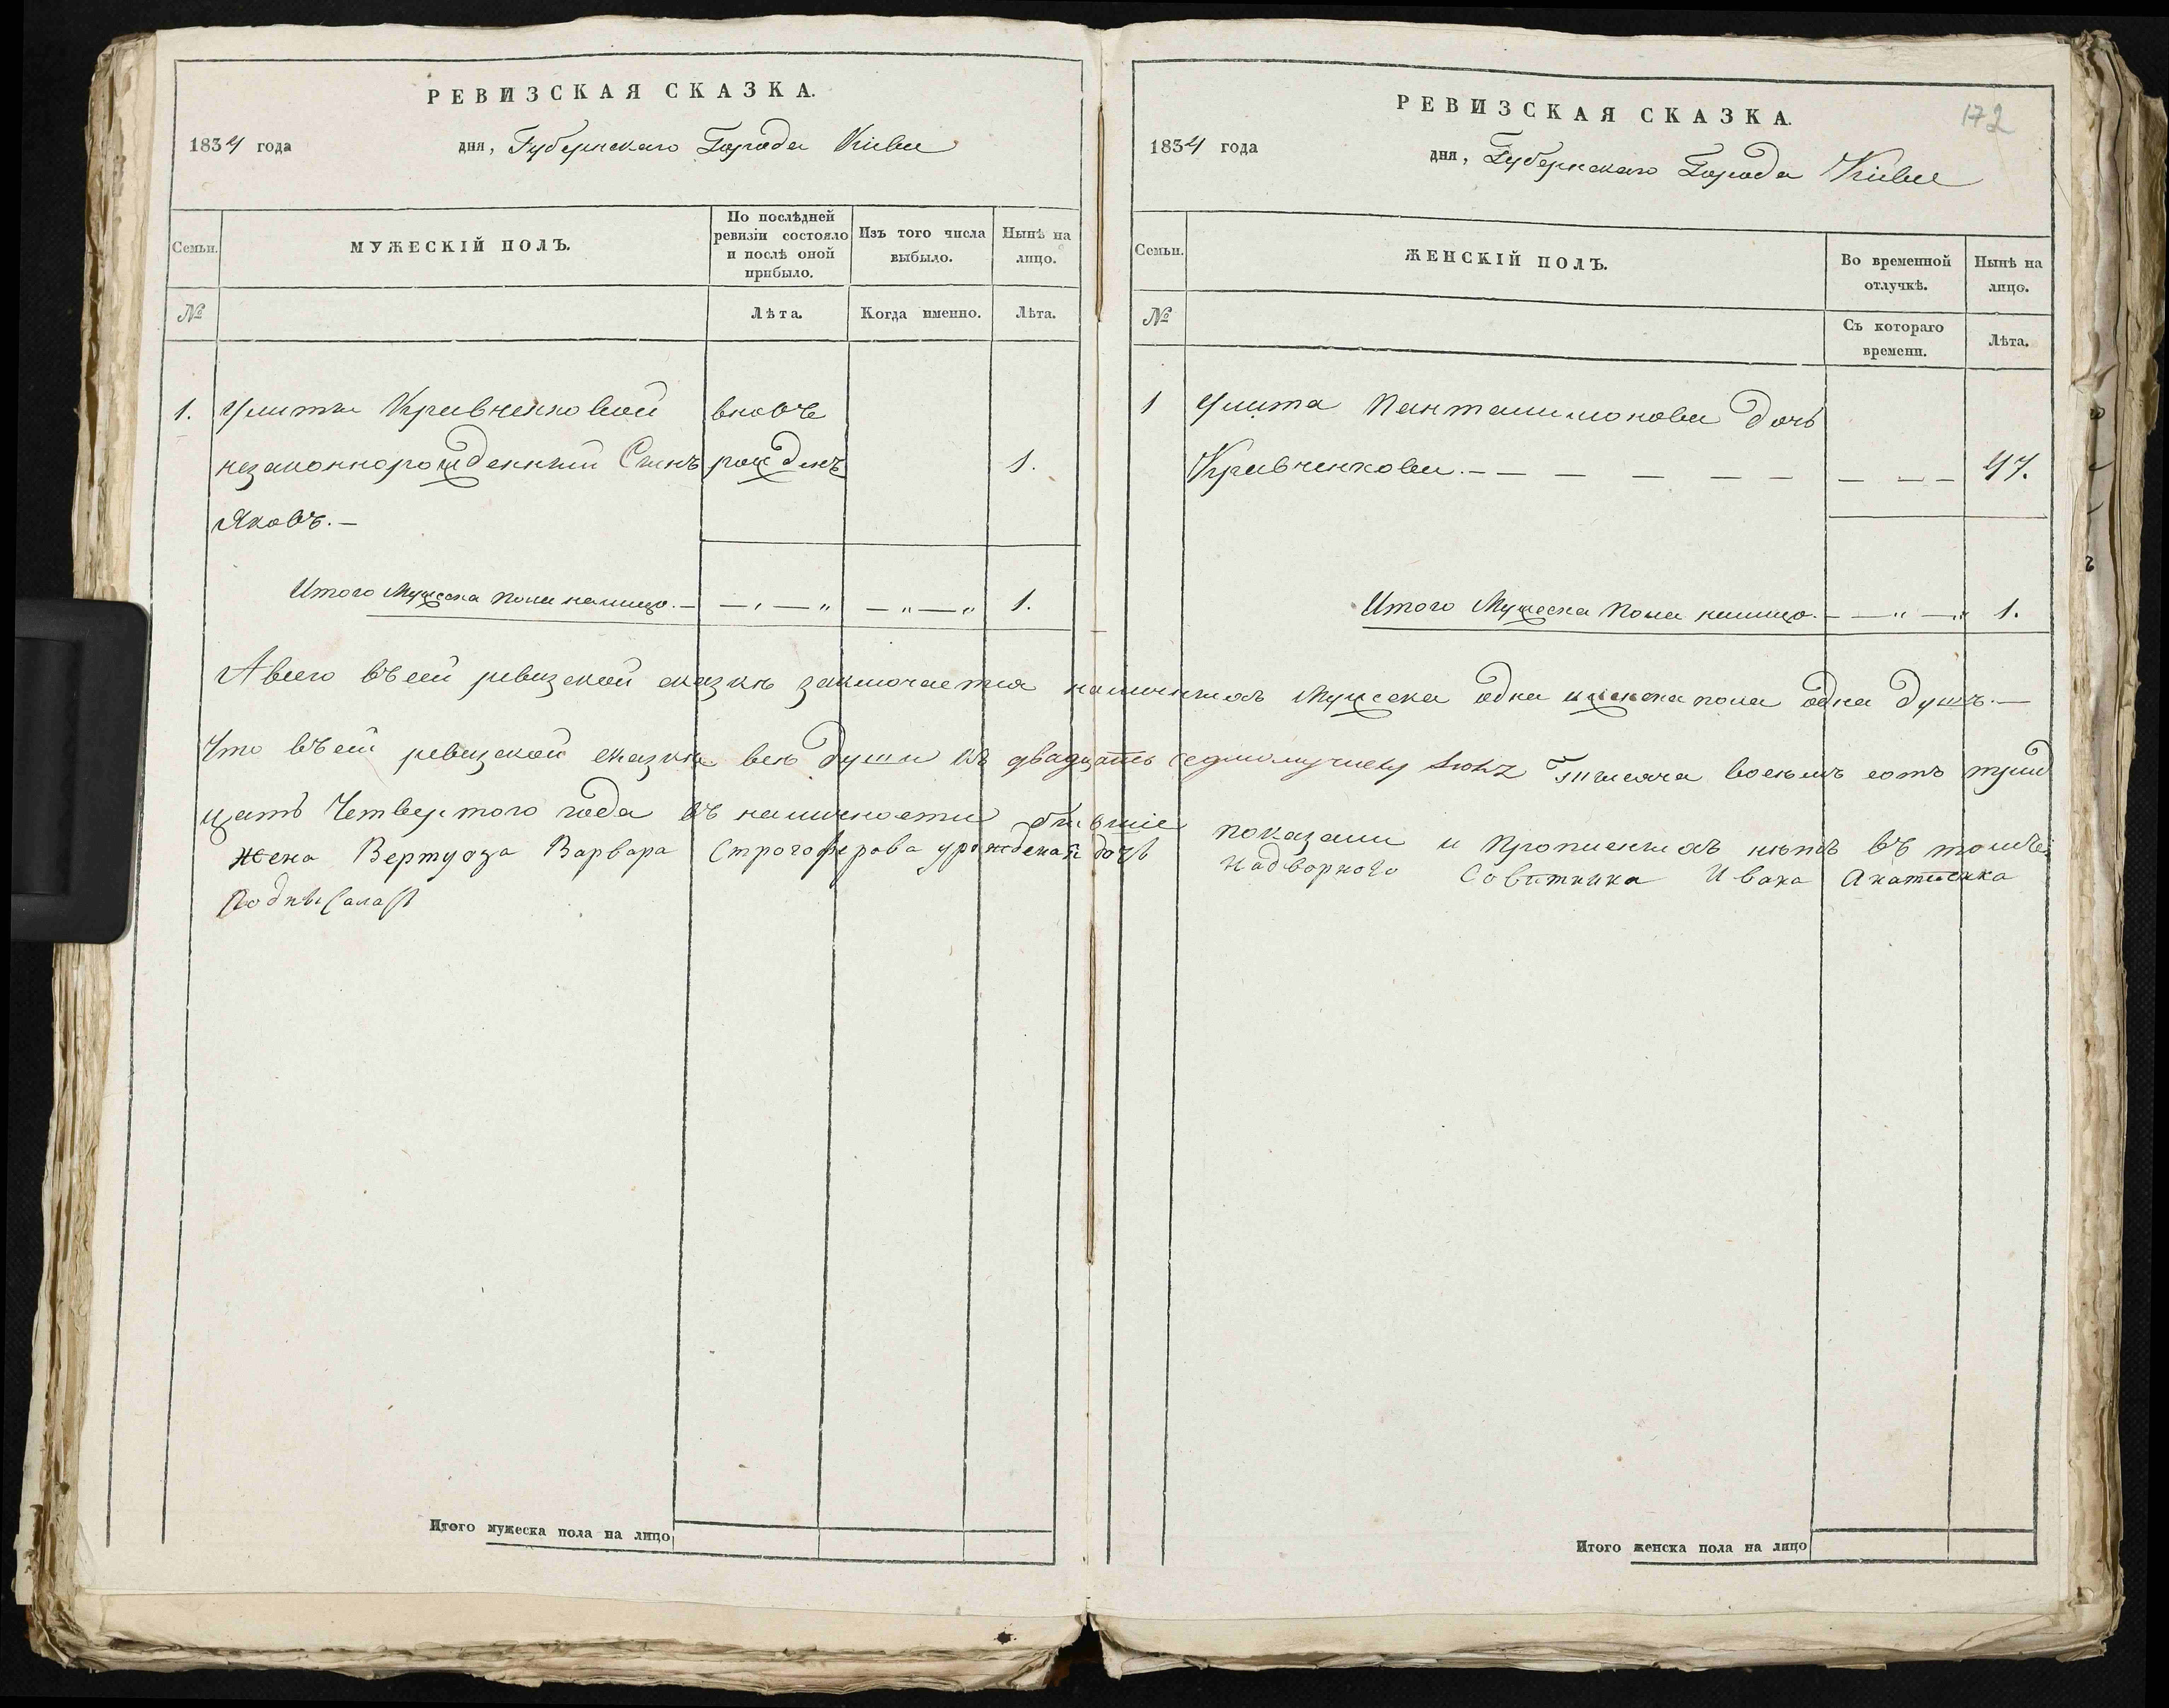 РЕВИЗСКАЯ СКАЗКА.
1834 года дня, Губернскаго Города Кіева
Семьи. МУЖЕСКІЙ ПОЛЪ. По послѣдней ревизіи состояло и послѣ оной прибыло. Изъ того числа выбыло. Нынѣ на лицо.
№ Лѣта. Когда именно. Лѣта.
1. Улиты Кравченковой вновь
незаконнорожденный Сынъ рожденъ 1.
Яковъ.—
Итого Мужеска пола налицо.— — „ — „ — „ — „ 1.
РЕВИЗСКАЯ СКАЗКА.
172
1834 года дня, Губернскаго Города Кіева
Семьи. ЖЕНСКІЙ ПОЛЪ. Во временной отлучкѣ. Нынѣ на лицо.
№ Съ котораго времени. Лѣта.
1 Улита Пантилимонова дочь
Кравченкова.— — — — — — — — — 47.
Итого Мужеска Пола налицо.— — „ — „ 1.
А всего въ сей ревизской сказкѣ заключается наличныхъ мужеска одна и женска пола одна душъ.—
Что въ сей ревизской сказкѣ всѣ души къ двадцать седмому числу Тысяча восемь сотъ трид
цать Четвертого года въ наличности бывшіе показаны и прописныхъ нѣтъ въ томъ
жена Варвара урожденая дочь Надворного Советника Ивана
Подписалась
Итого мужеска пола на лицо
Итого женска пола на лицо